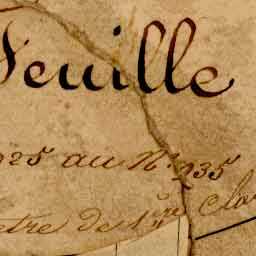 Feuille
925 au N° 935
etre de 1re Cla